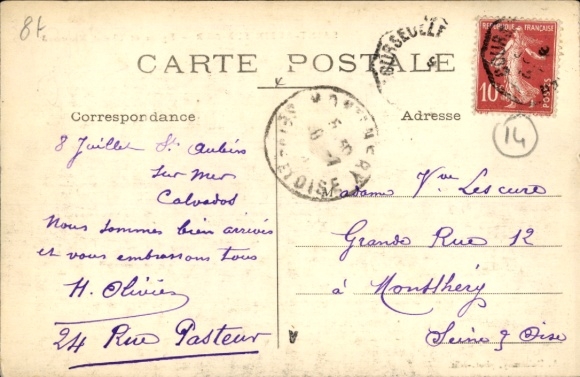 8t
CARTE POSTALE
Correspondance
Adresse
RÉPUBLIQUE FRANÇAISE
10
POSTES
COURSEULLE
MONTLHERY
OISE
14
8 Juillet St Aubin
sur mer
Calvados
Nous sommes bien arrivés
et vous embrassons tous
H. Olivier
24 Rue Pasteur
Madame Vve Lescure
Grande Rue 12
à Montlhéry
Seine & Oise